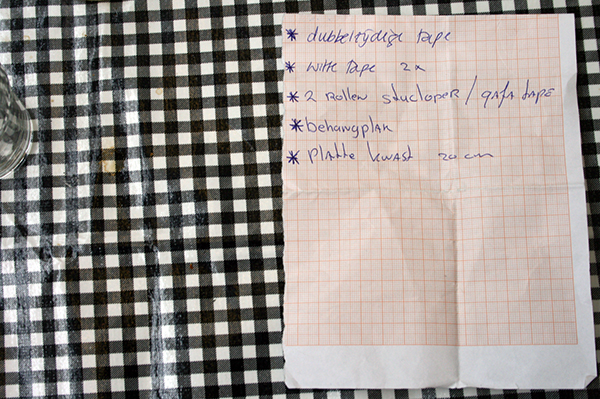 * dubbelzijdige tape
* witte tape 2x
* 2 rollen stucloper / gafa tape
* behangplak
* platte kwast 20 cm